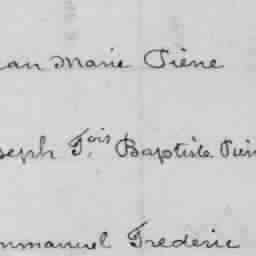 ean Marie Pième
seph F.ois Baptiste Piè
mmanuel Frederic